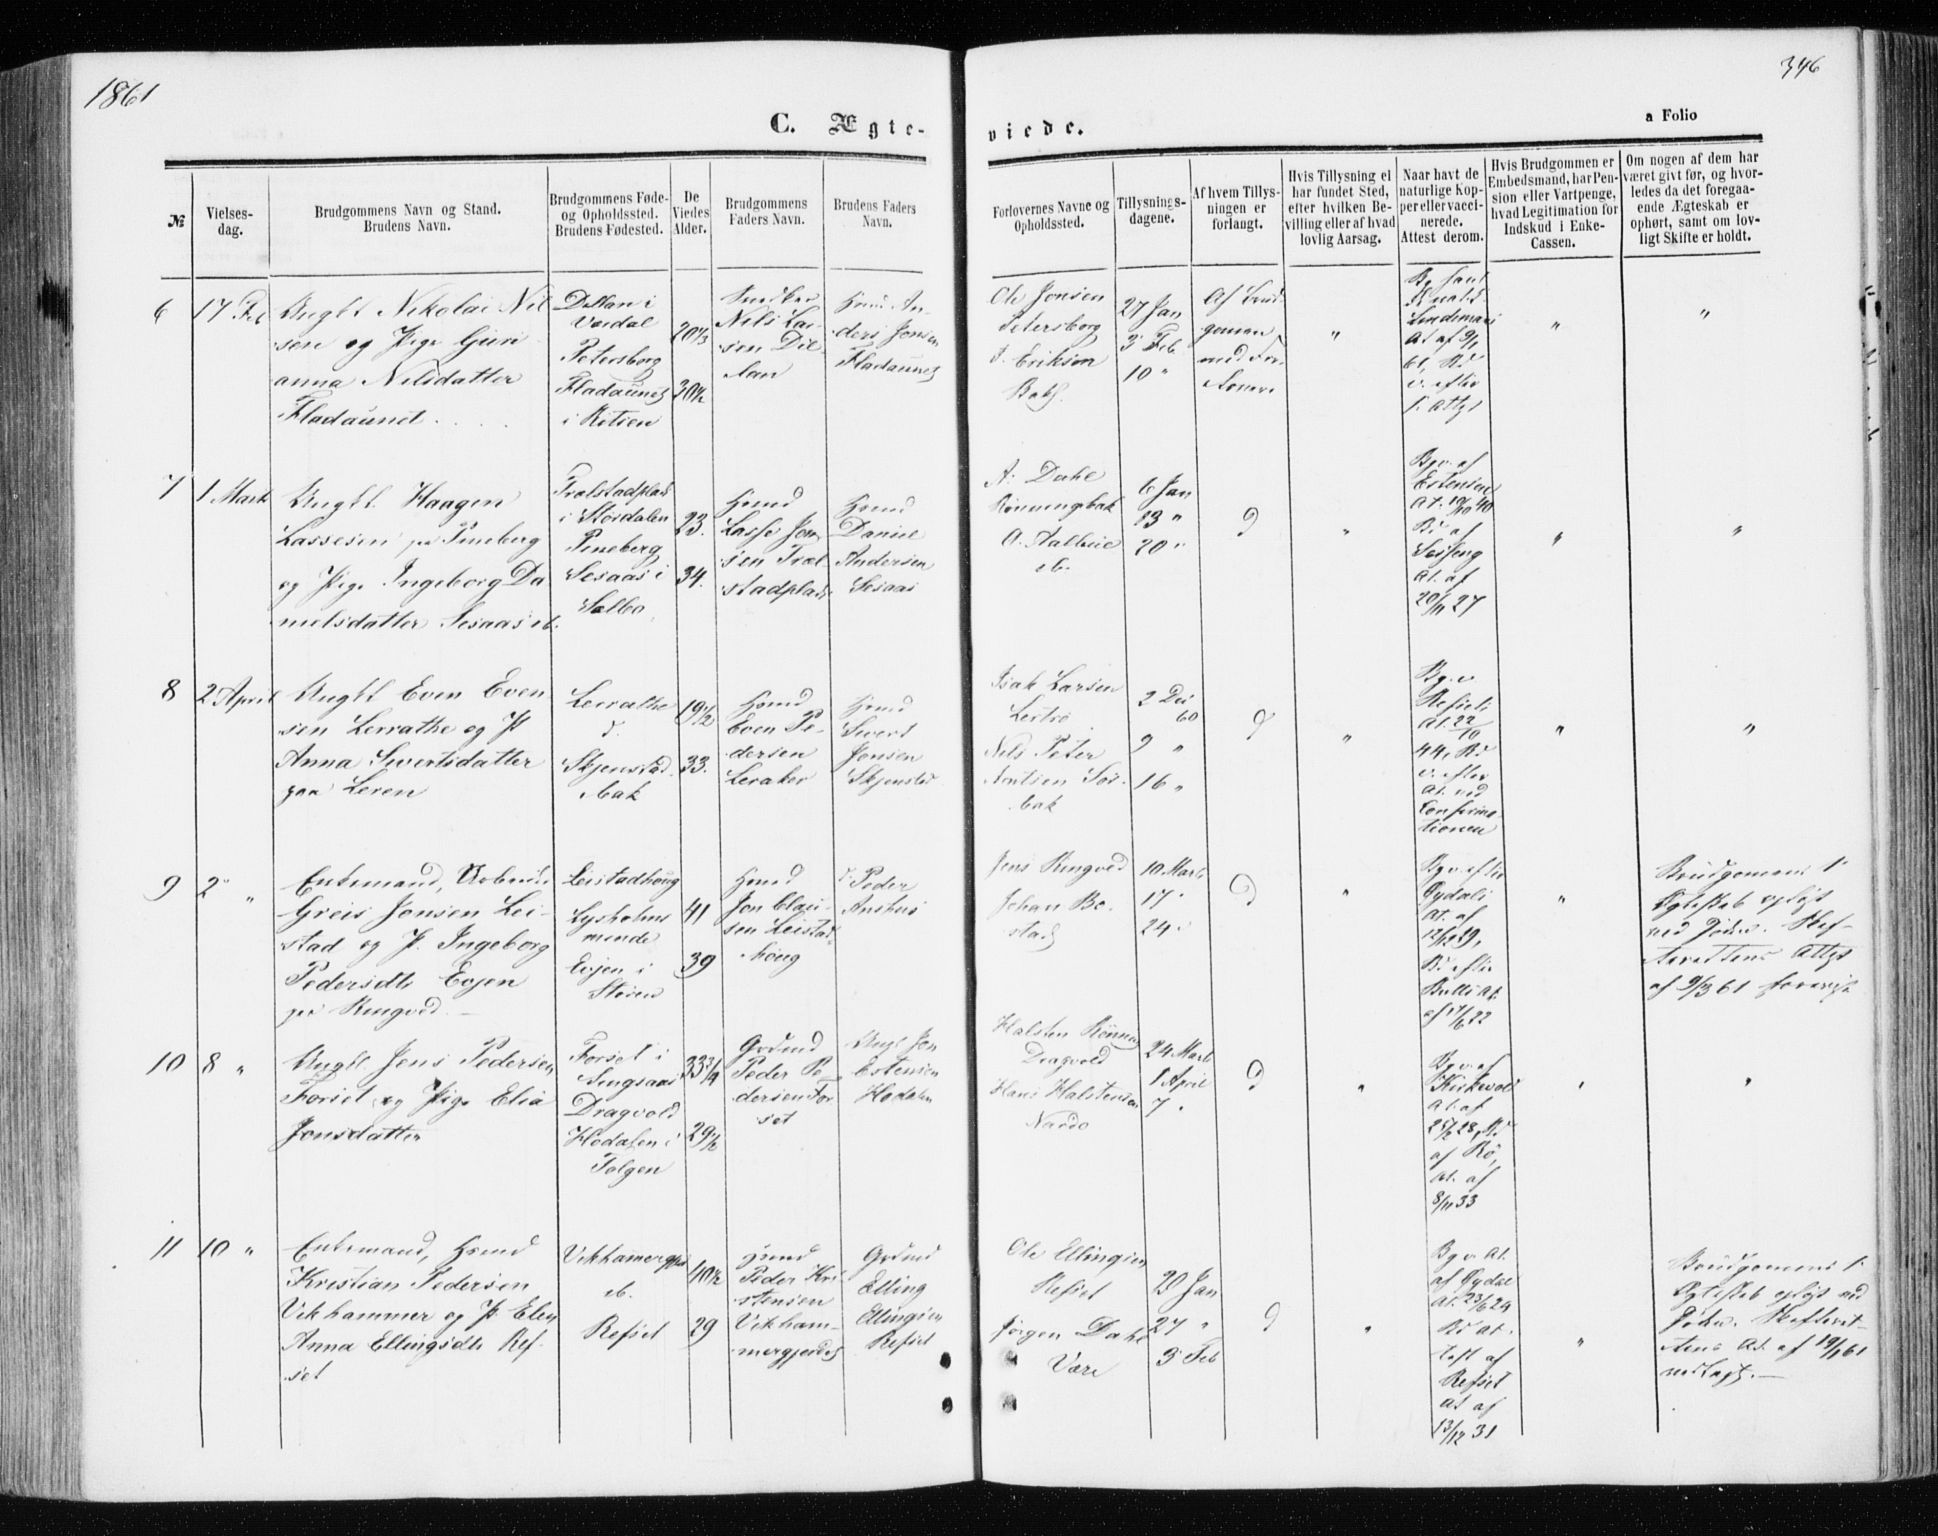 1861
346
C. Ægte-
viede.
a Folio
№
Vielses-
dag.
Brudgommens Navn og Stand.
Brudens Navn.
Brudgommens Føde-
og Opholdssted.
Brudens Fødested.
De
Viedes
Alder.
Brudgommens
Faders Navn.
Brudens Faders
Navn.
Forlovernes Navne og
Opholdssted.
Tillysnings-
dagene.
Af hvem Tillys-
ningen er
forlangt.
Hvis Tillysning ei
har fundet Sted,
efter hvilken Be-
villing eller af hvad
lovlig Aarsag.
Naar havt de
naturlige Kop-
per eller vacci-
nerede.
Attest derom.
Hvis Brudgommen er
Embedsmand, har Pen-
sion eller Vartpenge,
hvad Legitimation for
Indskud i Enke-
Cassen.
Om nogen af dem har
været givt før, og hvor-
ledes da det foregaa-
ende Ægteskab er
ophørt, samt om lov-
ligt Skifte er holdt.
6
17 Feb
Ungkl Nikolai Nil
sen og Pige Guri
anna Nilsdatter
Fladaunet
i
Værdal
Petersborg
Fladaunet
i Ritsen
20 1/3
30 1/2
Snedker
Nils Lar
sen
Hmd An-
ders Jonsen
Fladaunet
Ole Jonsen
Petersborg
J. Eriksen
27 Jan
3 Feb
10 "
Af Brud
gommen
med For
lovere
"
at af 9/1
61, Bd
v. efter
"
"
7
1 Marts
Ungkl. Haagen
Lassesen på Pineberg
og Pige Ingeborg Da
nielsdatter Sesaas ib.
Trælstadplads
i Størdalen
Pineberg
Sesaas i
Selbo
23.
34.
Hmd
Lasse Jon
sen Træl
stadplads
Hmd
Daniel
Andersen
Sesaas
A. Dahl
Rönningsbak
O. Aalberg
ib.
6 Jan
13 "
20 "
"
Bg v. af
Estensen
at. 19/10 40
Bd af
at. af
20/11 27
"
"
8
2 April
Ungkl Even Even
sen Lerrathe og P
Anna Sivertsdatter
paa Leren
Lerrathe
Skjenstad
bak
19 1/2
33.
Hsmd
Even Pe-
dersen
Leraker
Hmd
Sivert
Jonsen
Skjenstad
Isak Larsen
Nils Peter
Arntsen Sor
bak
2 Des
60
9 "
16 "
"
Bg. v.
Refseth
at. 22/10
44, Bd
v. efter
at. ved
Confirma
tionen
"
"
9
2 "
Enkemand,
Greis Jonsen Lei-
stad og P. Ingeborg
Pedersdtr Evjen
på Ringved
Leistadhöug
Lysholms
minde
Evjen i
Stören
41
39
Hmd
Jon Claus
sen Leistad
höug
Peder
Jens Ringved
Johan Bo-
stad
10 Marts
17 "
24 "
"
Bg v. efter
at. af
12/12 19,
Bd efter
Bulls at.
af 17/6 22
"
Brudgomens 1
Egteskab oplöst
ved Döden. Skif-
terettens Attest
af 9/3 61 forevist
10
8 "
Ungkl. Jens Pedersen
Forset og Pige Elia
Jonsdatter
Forset i
Singsaas
Dragvold
Hodalen i
Tolgen
33 3/4
29 1/2
Grdmd
Peder Pe-
dersen For
set
Ungk Jon
Estensen
Hodalen
Halsten Rönning
Dragvold
Hans Halstensen
Nardo
24 Marts
1 April
7 "
"
Bg v. af
Kirkevold
at. af
25/6 28, Bd
af Rö,
at. af
8/11 33
"
"
11
10 "
Enkemand, Hsmd
Kristian Pedersen
Vikhammer og P. Elen
Anna Ellingsdtr Ref-
set
ib.
Refset
40 1/2
29
Hsmd
Peder Kri
stensen
Vikham-
mergjerdet
Grdmd
Elling
Ellingsen
Refset
Ole Ellingsen
Refset
Jörgen Dahl
Være
20 Jan
27 "
3 Feb
"
Bg v. at.
af Oxdal
at. 23/6 24
Bd at.
af
Refset
at af
13/12 31
"
Brudgomens 1
Egteskab oplöst ved
Döden. Skifteret-
tens At. af 19/1 61
vedlagt.